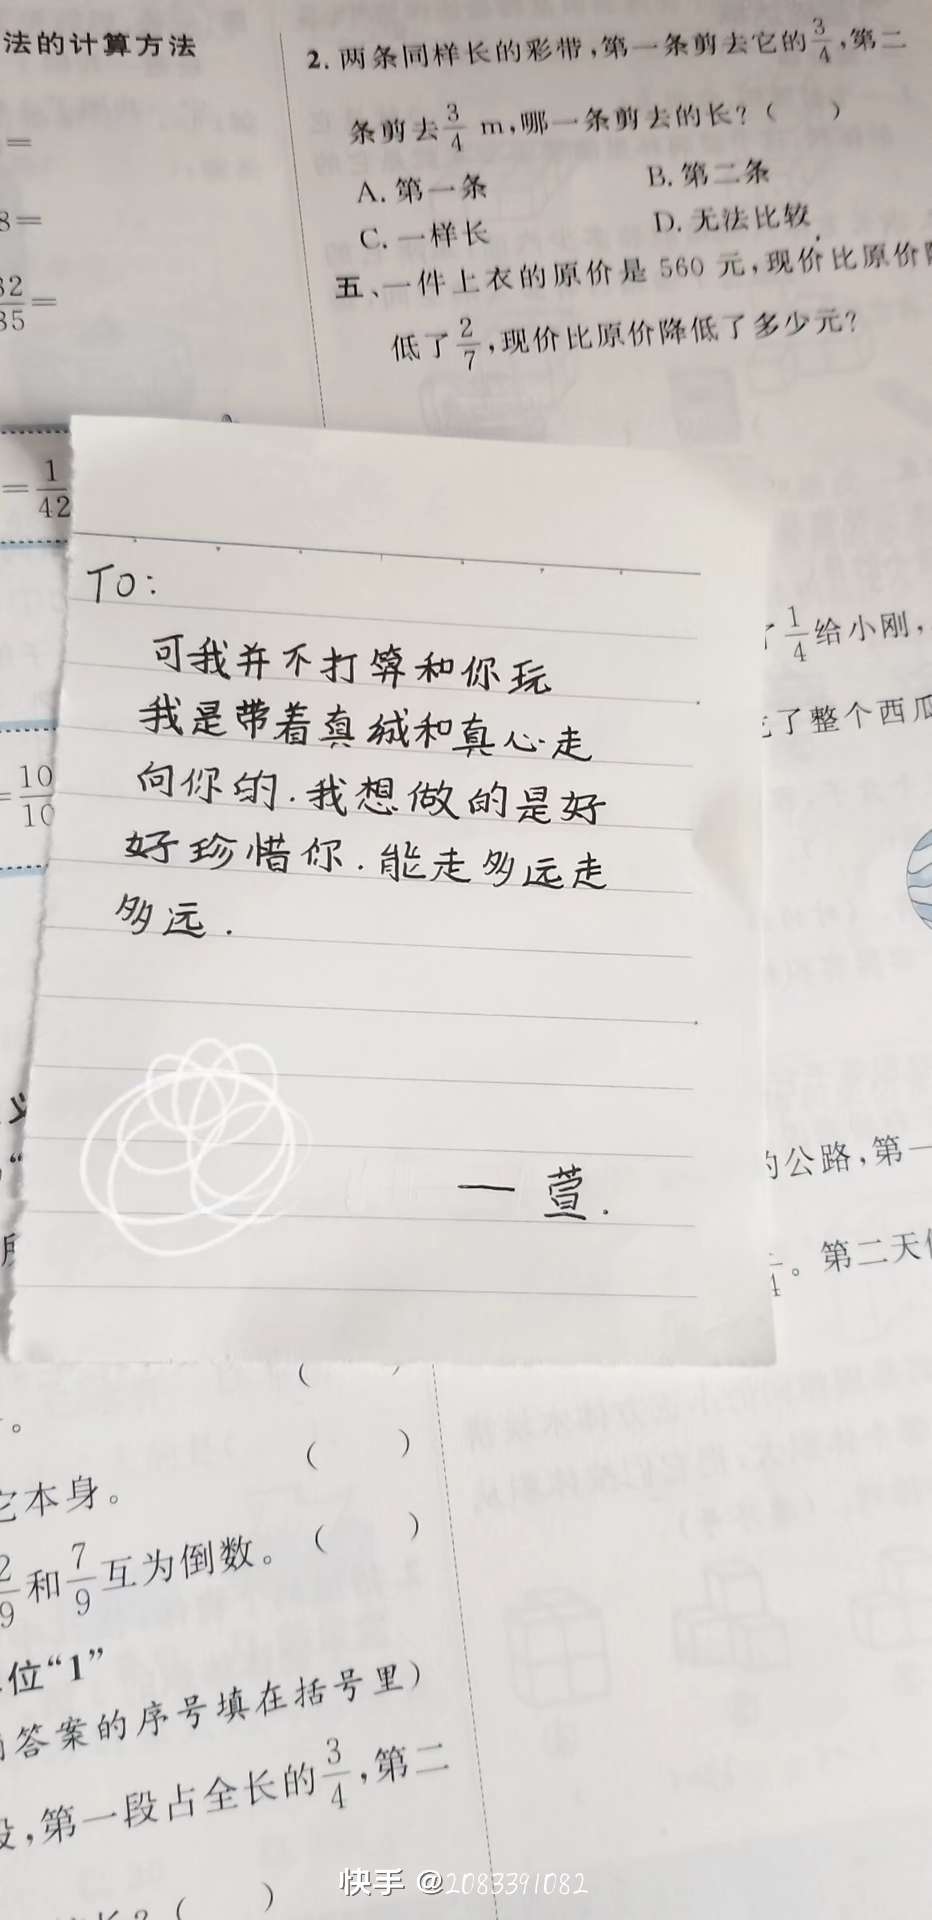 法的计算方法
=
8=
32/35=
=1/42
=10/10
2. 两条同样长的彩带,第一条剪去它的3/4,第二
条剪去3/4 m,哪一条剪去的长?( )
A. 第一条 B. 第二条
C. 一样长 D. 无法比较
五、一件上衣的原价是 560 元,现价比原价降
低了2/7,现价比原价降低了多少元?
TO:
可我并不打算和你玩
我是带着真绒和真心走
向你的.我想做的是好
好珍惜你.能走多远走
多远.
一萱.
了1/4给小刚,
了整个西瓜
的公路,第一
4。第二天
( )
。 ( )
它本身。 ( )
2/9和7/9互为倒数。( )
位“1”
答案的序号填在括号里)
段,第一段占全长的3/4,第二
长?( )
快手 @2083391082